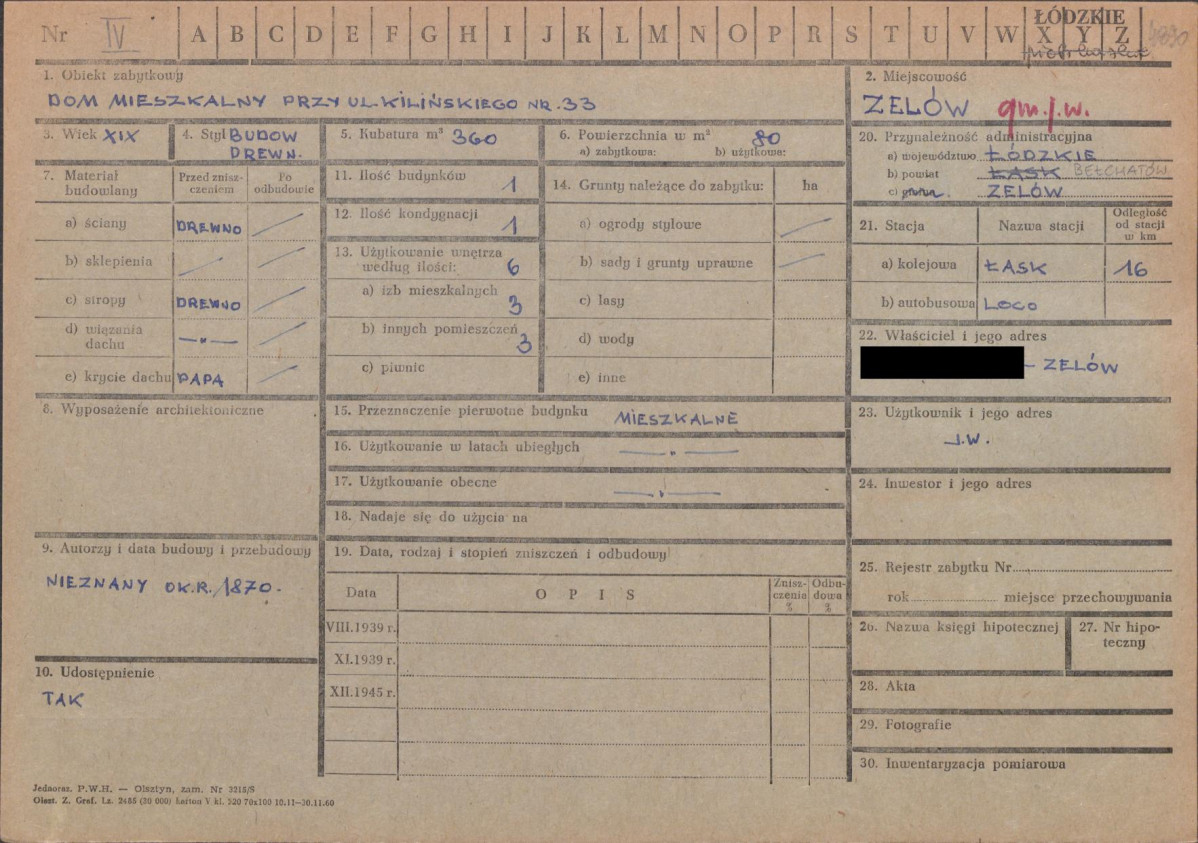 Nr IV A B C D E F G H I J K L M N O P R S T U V W X Y Z
ŁÓDZKIE
1. Obiekt zabytkowy
DOM MIESZKALNY PRZY UL. KILIŃSKIEGO NR. 33
2. Miejscowość
ZELÓW gm.j.w.
3. Wiek XIX
4. Styl BUDOW
DREWN.
5. Kubatura m³ 360
6. Powierzchnia w m² 80
a) zabytkowa: b) użytkowa:
7. Materiał
budowlany
Przed znisz-
czeniem
Po
odbudowie
a) ściany DREWNO
b) sklepienia
c) stropy DREWNO
d) wiązania
dachu —„—
e) krycie dachu PAPA
11. Ilość budynków 1
12. Ilość kondygnacji 1
13. Użytkowanie wnętrza
według ilości: 6
a) izb mieszkalnych 3
b) innych pomieszczeń 3
c) piwnic
14. Grunty należące do zabytku: ha
a) ogrody stylowe
b) sady i grunty uprawne
c) lasy
d) wody
e) inne
20. Przynależność administracyjna
a) województwo ŁÓDZKIE
b) powiat ŁASK BEŁCHATÓW
c) gmina ZELÓW
21. Stacja Nazwa stacji
Odległość
od stacji
w km
a) kolejowa ŁASK 16
b) autobusowa LOCO
22. Właściciel i jego adres
– ZELÓW
8. Wyposażenie architektoniczne
15. Przeznaczenie pierwotne budynku MIESZKALNE
16. Użytkowanie w latach ubiegłych —„—
17. Użytkowanie obecne —„—
18. Nadaje się do użycia na
23. Użytkownik i jego adres
J.W.
24. Inwestor i jego adres
9. Autorzy i data budowy i przebudowy
NIEZNANY OK.R./1870.
19. Data, rodzaj i stopień zniszczeń i odbudowy
Data OPIS
Znisz-
czenia
%
Odbu-
dowa
%
VIII.1939 r.
XI.1939 r.
XII.1945 r.
10. Udostępnienie
TAK
25. Rejestr zabytku Nr
rok miejsce przechowywania
26. Nazwa księgi hipotecznej
27. Nr hipo-
teczny
28. Akta
29. Fotografie
30. Inwentaryzacja pomiarowa
Jednoraz. P.W.H. — Olsztyn, zam. Nr 3215/S
Olszt. Z. Graf. Lz. 2485 (30 000) karton V kl. 320 70x100 10.11—30.11.60